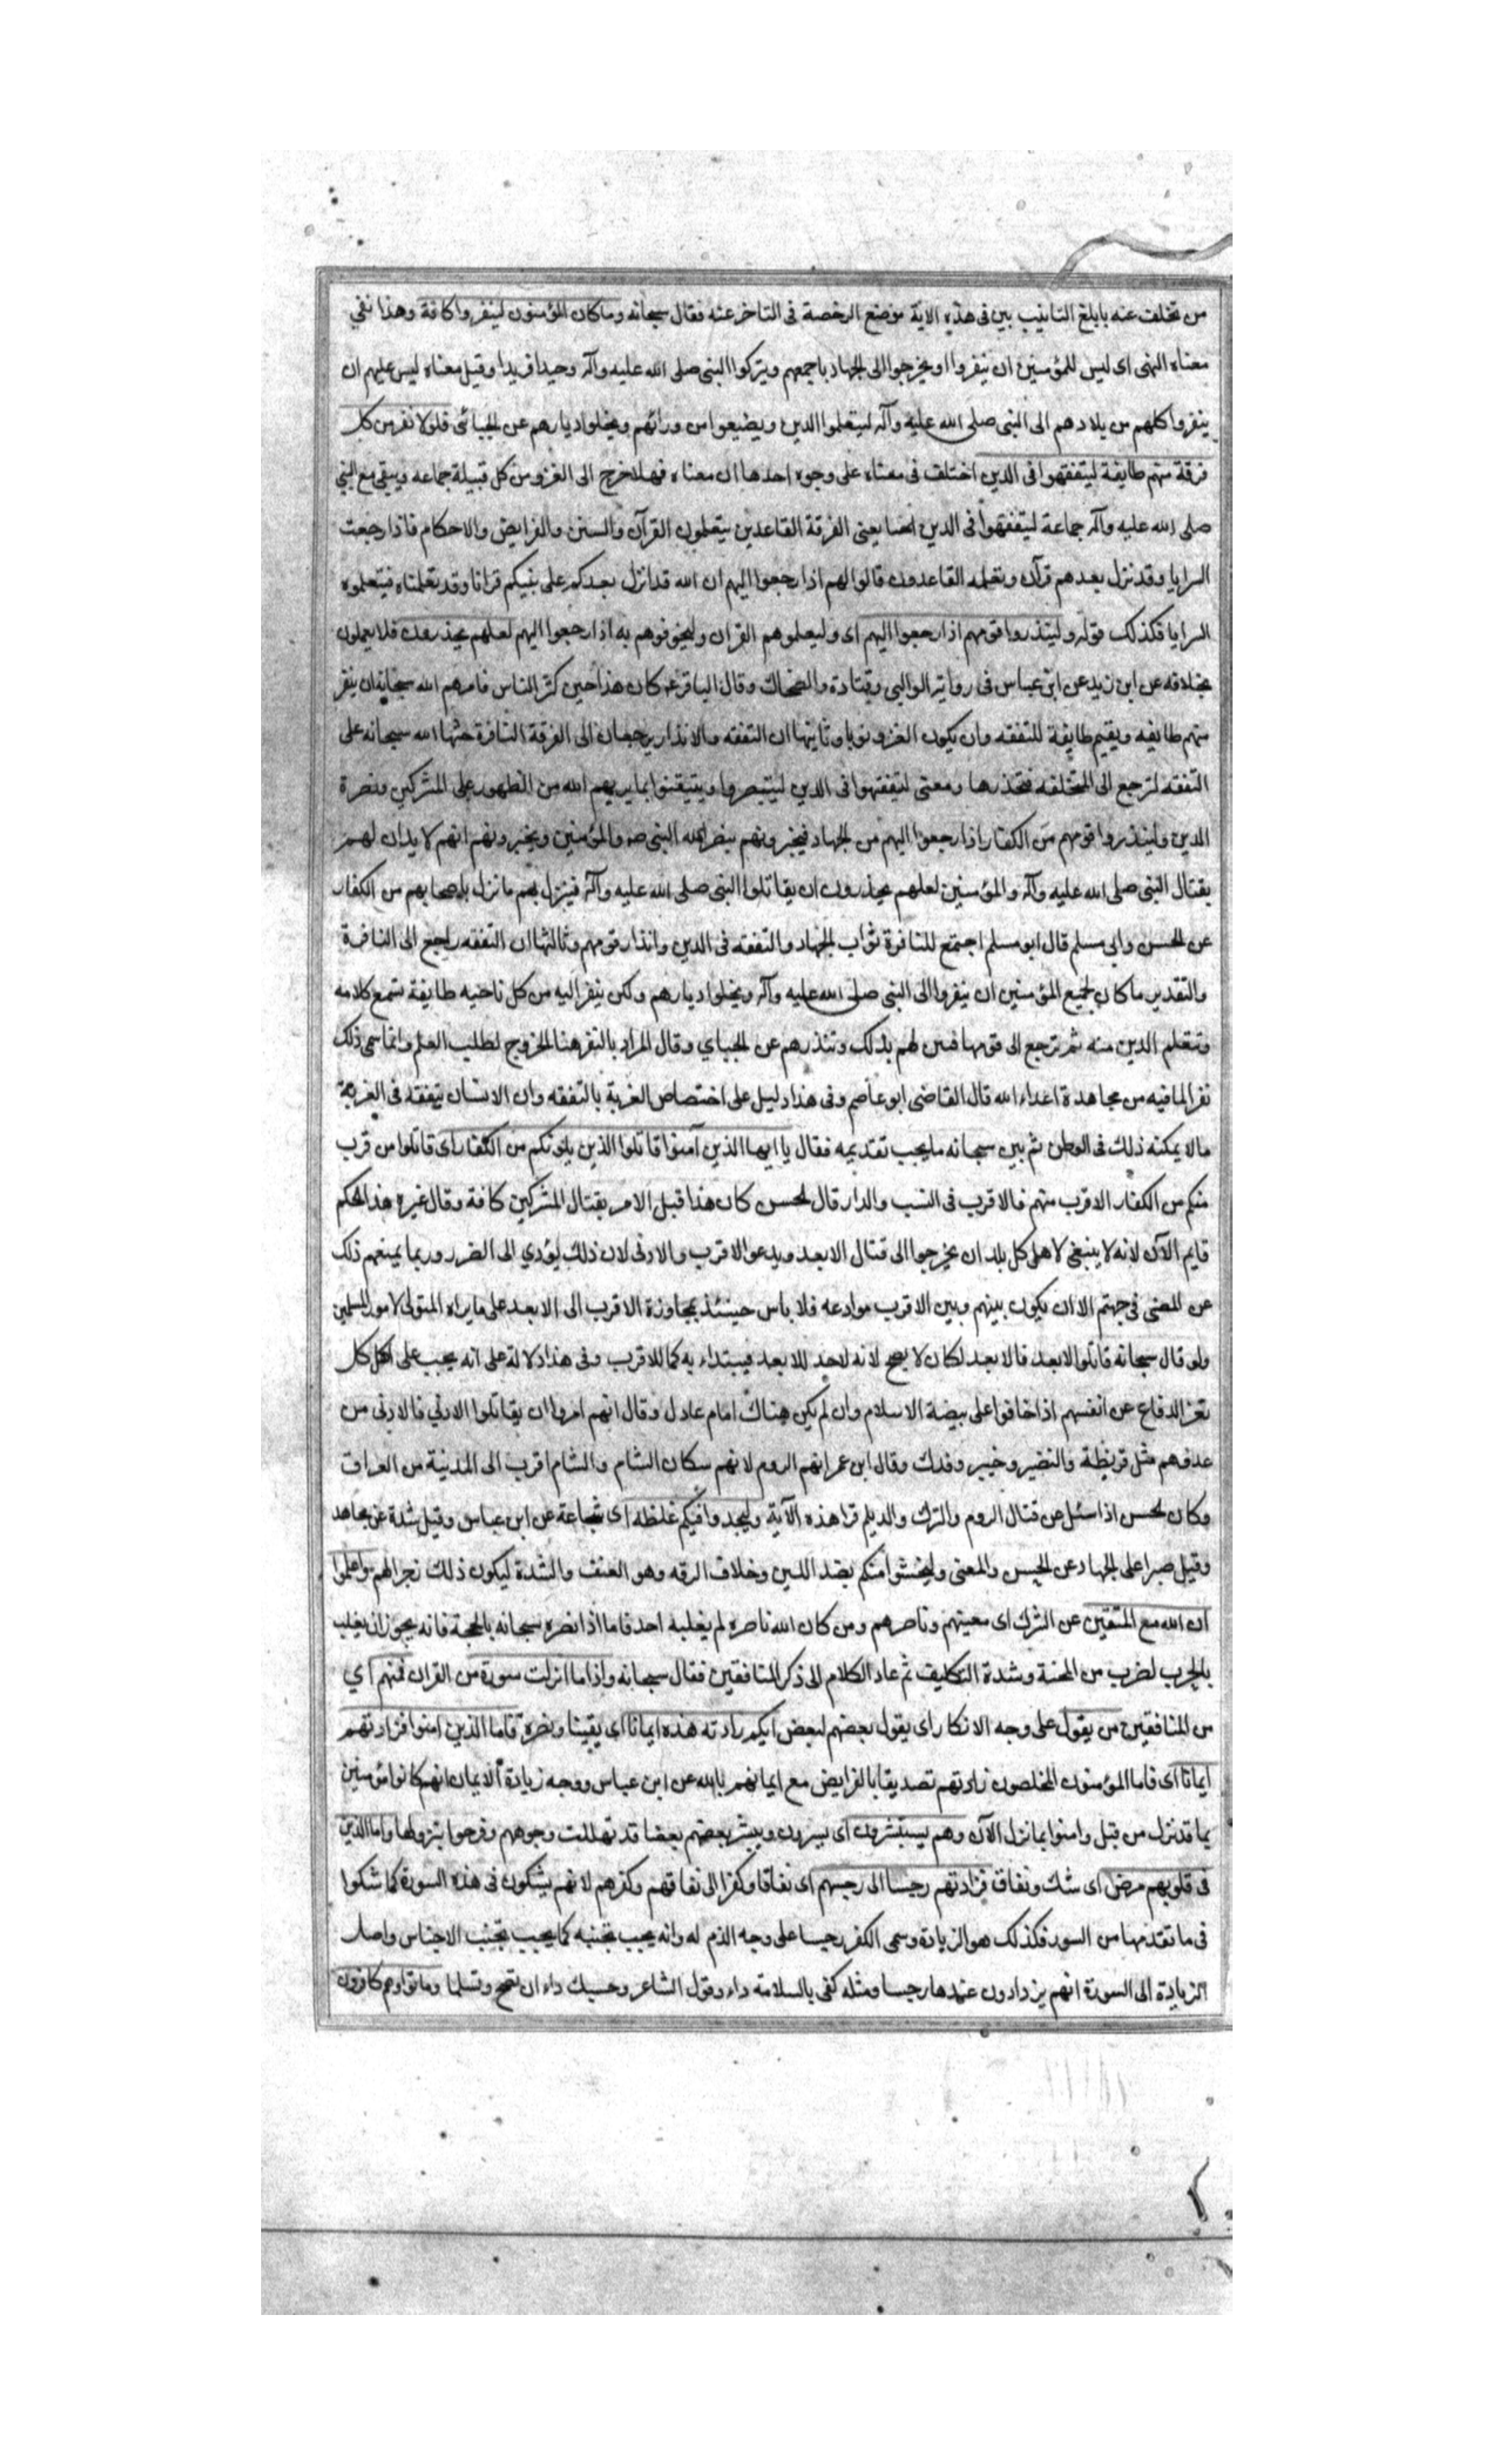 من تخلف عنه بابلغ التانيب بين فى هذه الاية موضع الرخصة فى التاخر عنه فقال سبحانه وما كان المؤمنون لينفروا كافة وهذا نفي
معناه النهى اى ليس للمؤمنين ان ينفروا او يخرجوا الى الجهاد باجمعهم ويتركوا النبى صلى الله عليه وآله وحيدا فريدا وقيل معناه ليس عليهم ان
ينفروا كلهم من بلادهم الى النبى صلى الله عليه وآله ليتعلموا الدين ويضيعوا من ورائهم ويخلوا ديارهم عن الجبائى فلولا نفر من كل
فرقة منهم طايفة ليتفقهوا فى الدين اختلف فى معناه على وجوه احدها ان معناه فهلا خرج الى الغزو من كل قبيلة جماعه ويبقى مع النبي
صلى الله عليه وآله جماعة ليتفقهوا فى الدين يعنى الفرقة القاعدين يتعلمون القرآن والسنن والفرايض والاحكام فاذا رجعت
السرايا وقد نزل بعدهم قرآن وتعلمه القاعدون قالوا لهم اذا رجعوا اليهم ان الله قد انزل بعدكم على نبيكم قرانا وقد تعلمناه فيتعلموه
السرايا فكذلك قوله ولينذروا قومهم اذا رجعوا اليهم اى وليعلموهم القران وليخوفوهم به اذا رجعوا اليهم لعلهم يحذرون فلا يعملون
بخلافه عن ابن زيد عن ابن عباس فى رواية الوالبي وقتادة والضحاك وقال الباقر ع كان هذا حين كثر الناس فامرهم الله سبحانه ان ينفر
منهم طائفه ويقيم طايفة للتفقه وان يكون الغزو نوبا وثانيها ان التفقه والانذار يرجعان الى الفرقة النافرة حثها الله سبحانه على
التفقه لترجع الى المتخلفه فتحذرها ومعنى ليتفقهوا فى الدين ليتبصروا ويتيقنوا بما يريهم الله من الظهور على المشركين ونصرة
الدين ولينذروا قومهم من الكفار اذا رجعوا اليهم من الجهاد فيخبرونهم بنصر الله النبى ص والمؤمنين ويخبرونهم انهم لا يدان لهم
بقتال النبى صلى الله عليه وآله والمؤمنين لعلهم يحذرون ان يقاتلوا النبى صلى الله عليه وآله فينزل بهم ما نزل باصحابهم من الكفار
عن الحسن وابى مسلم قال ابو مسلم اجتمع للنافرة ثواب الجهاد والتفقه فى الدين وانذار قومهم وثالثها ان التفقه راجع الى النافرة
والتقدير ما كان لجميع المؤمنين ان ينفروا الى النبى صلى الله عليه وآله ويخلوا ديارهم ولكن ينفر اليه من كل ناحيه طايفة تسمع كلامه
وتتعلم الدين منه ثم ترجع الى قومها فتبين لهم بذلك وتنذرهم عن الجباي وقال المراد بالنفر هنا الخروج لطلب العلم وانما سمى ذلك
نفرا لما فيه من مجاهدة اعداء الله قال القاضى ابو عاصم وفى هذا دليل على اختصاص الغربة بالتفقه وان الانسان يتفقه فى الغربة
ما لا يمكنه ذلك فى الوطن ثم بين سبحانه ما يجب تقديمه فقال يا ايها الذين آمنوا قاتلوا الذين يلونكم من الكفار اى قاتلوا من قرب
منكم من الكفار الاقرب منهم فالاقرب فى النسب والدار قال الحسن كان هذا قبل الامر بقتال المشركين كافة وقال غيره هذا الحكم
قايم الآن لانه لا ينبغى لاهل كل بلد ان يخرجوا الى قتال الابعد ويدعوا الاقرب والادنى لان ذلك يؤدي الى الضرر وربما يمنعهم ذلك
عن المضى فى جهتهم الا ان يكون بينهم وبين الاقرب موادعه فلا باس حينئذ بمجاوزة الاقرب الى الابعد على ما يراه المتولى لامور المسلمين
ولو قال سبحانه قاتلوا الابعد فالابعد لكان لا يصح لانه لا حد للابعد فيبتداء به كما للاقرب وفى هذا دلالة على انه يجب على اهل كل
ثغر الدفاع عن انفسهم اذا خافوا على بيضة الاسلام وان لم يكن هناك امام عادل وقال انهم امروا ان يقاتلوا الادنى فالادنى من
عدوهم مثل قريظة والنضير وخيبر وفدك وقال ابن عمر انهم الروم لانهم سكان الشام والشام اقرب الى المدينة من العراق
وكان الحسن اذا سئل عن قتال الروم والترك والديلم قرا هذه الآية وليجدوا فيكم غلظه اى شجاعة عن ابن عباس وقيل شدة عن مجاهد
وقيل صبرا على الجهاد عن الحسن والمعنى وليحسوا منكم بضد اللين وخلاف الرقه وهو العنف والشدة ليكون ذلك زجرا لهم واعلموا
ان الله مع المتقين عن الشرك اى معينهم وناصرهم ومن كان الله ناصره لم يغلبه احد فاما اذا نصره سبحانه بالحجة فانه يجوز ان يغلب
بالحرب لضرب من المحنة وشدة التكليف ثم عاد الكلام الى ذكر المنافقين فقال سبحانه واذا ما انزلت سورة من القران فمنهم اي
من المنافقين من يقول على وجه الانكار اى يقول بعضهم لبعض ايكم زادته هذه ايمانا اى يقينا وبصرة فاما الذين امنوا فزادتهم
ايمانا اى فاما المؤمنون المخلصون زادتهم تصديقا بالفرايض مع ايمانهم بالله عن ابن عباس ووجه زيادة الايمان انهم كانوا مؤمنين
بما قد نزل من قبل وامنوا بما نزل الآن وهم يستبشرون اى يسرون ويبشر بعضهم بعضا قد تهللت وجوههم وفرحوا بنزولها واما الذين
فى قلوبهم مرض اى شك ونفاق فزادتهم رجسا الى رجسهم اى نفاقا وكفرا الى نفاقهم وكفرهم لانهم يشكون فى هذه السورة كما شكوا
فى ما تقدمها من السور فكذلك هو الزيادة وسمى الكفر رجسا على وجه الذم له وانه يجب تجنبه كما يجب تجنب الاجناس واصل
الزيادة الى السورة انهم يزدادون عندها رجسا ومثله كفى بالسلامة داء وقول الشاعر وحسبك داء ان تصح وتسلما وماتوا وهم كافرون